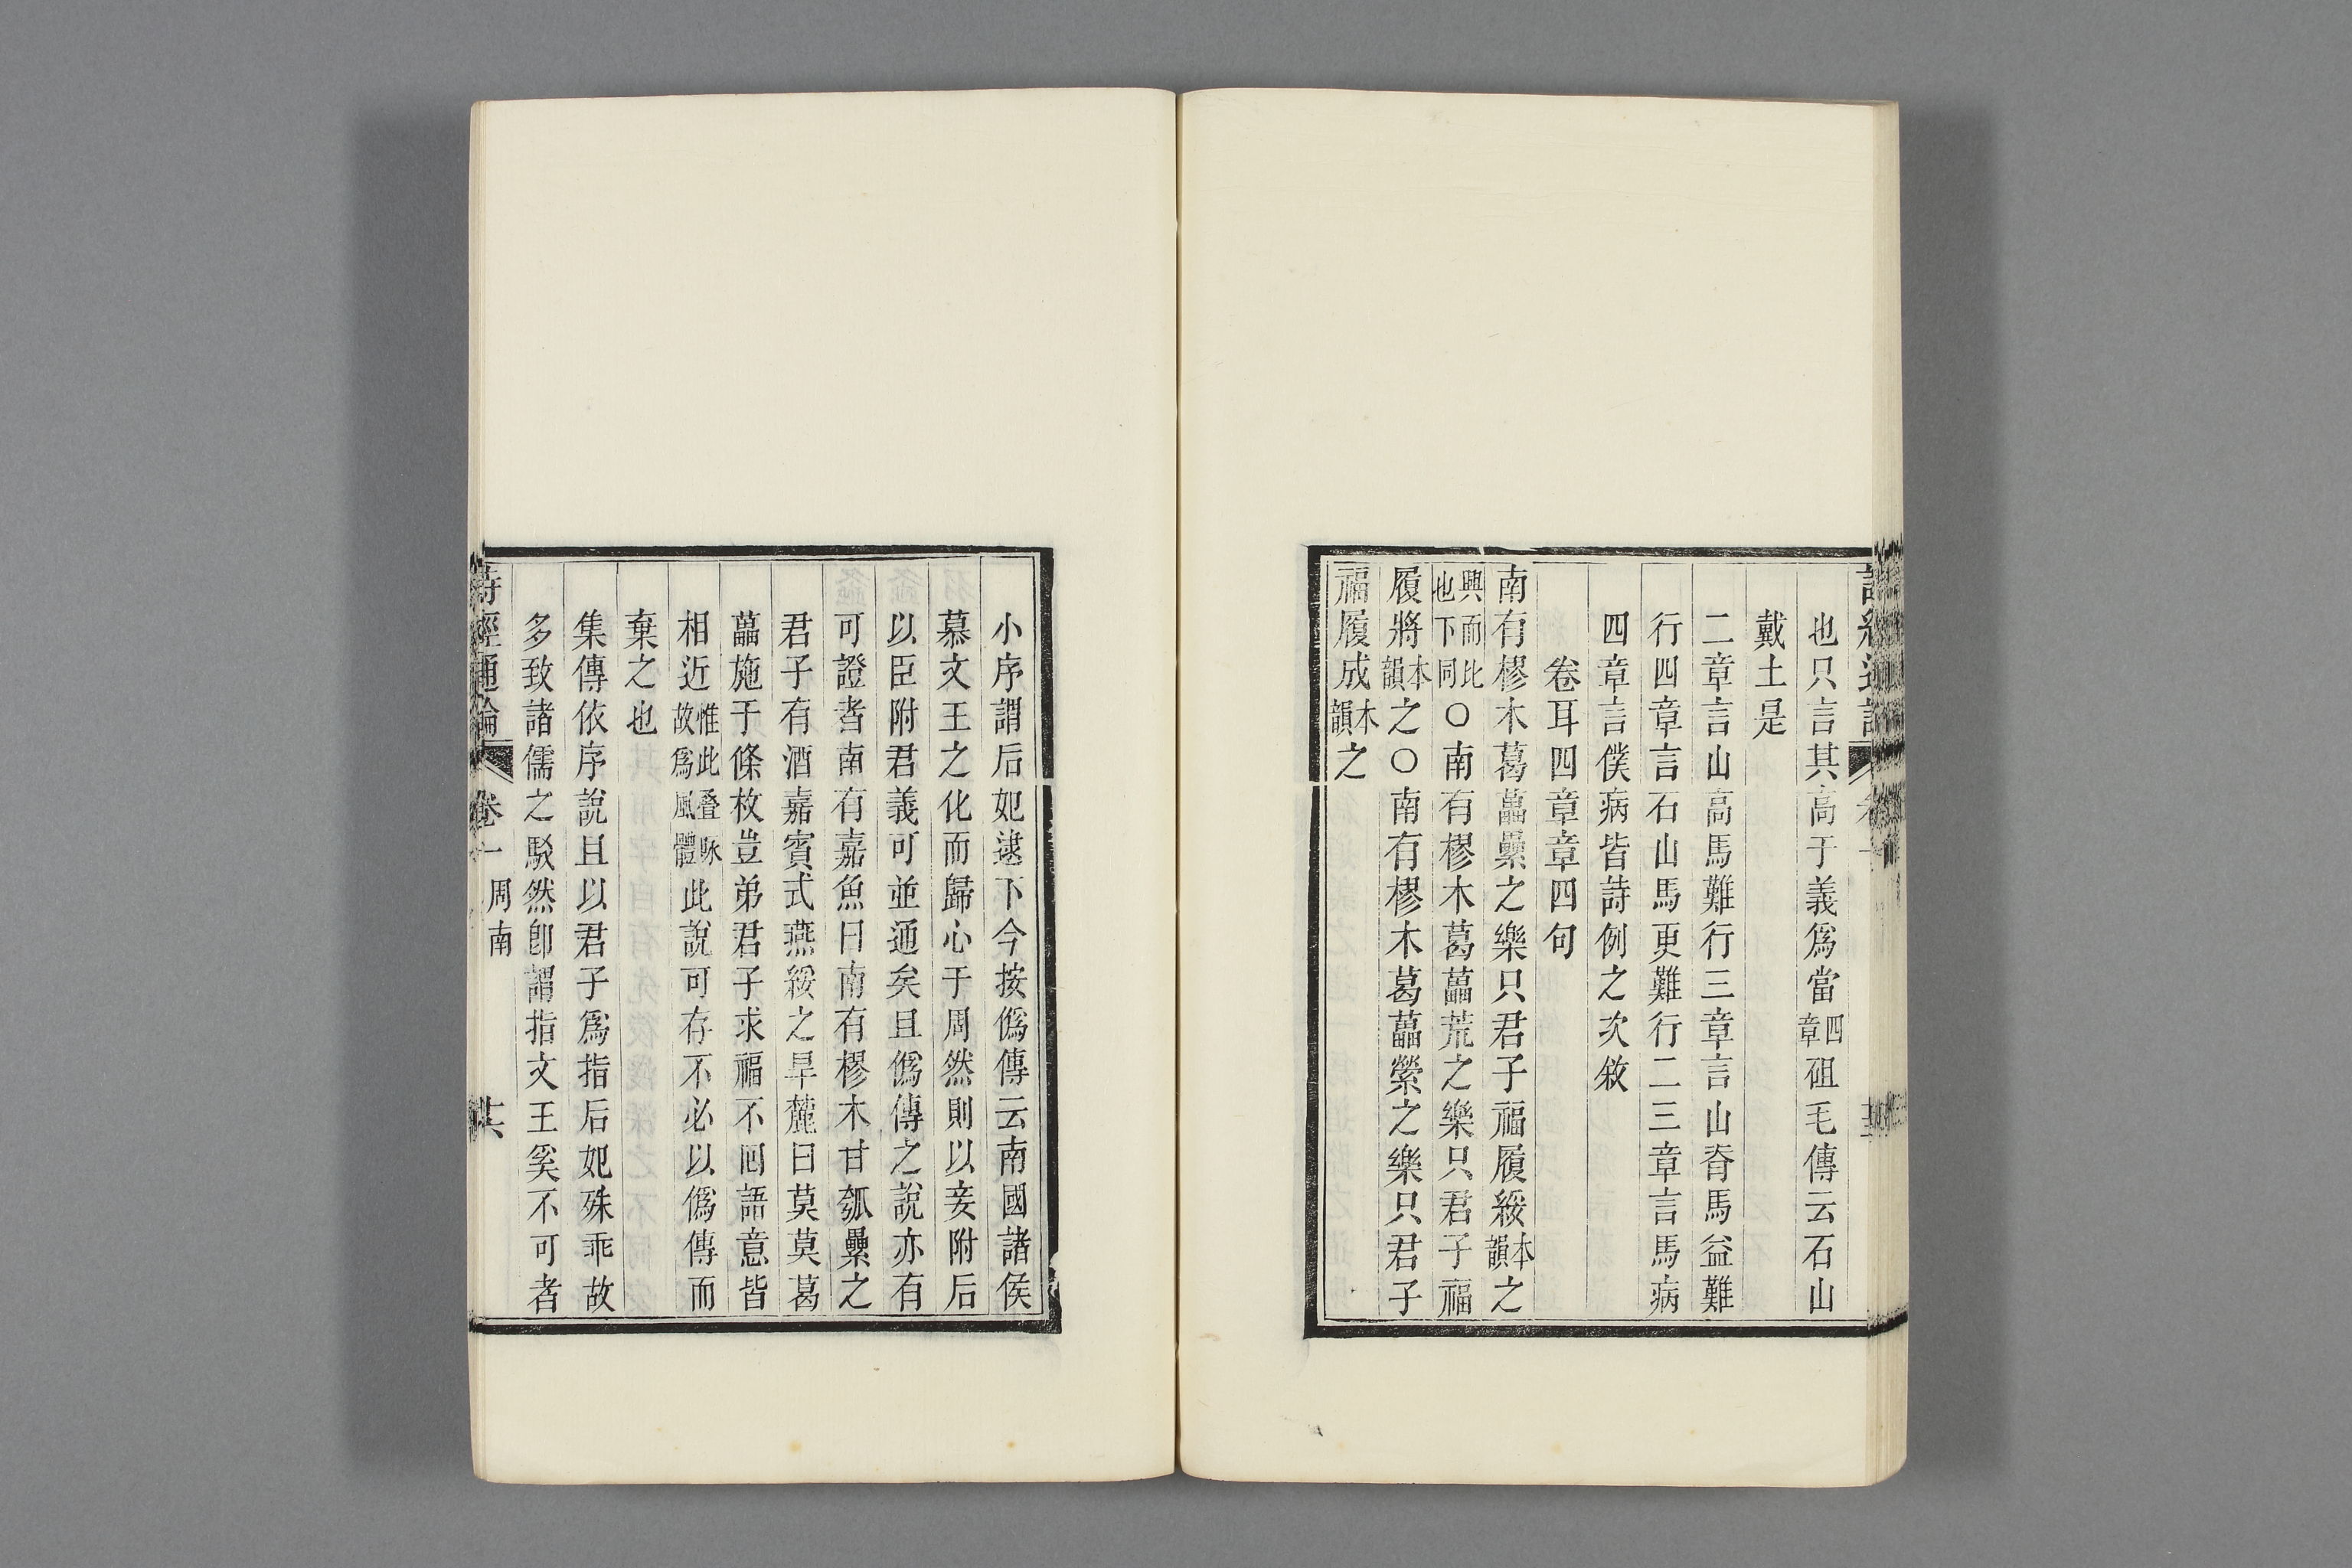 也只言其高于義爲當四章砠毛傳云石山
戴土是
二章言山高馬難行三章言山脊馬益難
行四章言石山馬更難行二三章言馬病
四章言僕病皆詩例之次敘
卷耳四章章四句
南有樛木葛藟纍之樂只君子福履綏本韻之
興而比也下同○南有樛木葛藟荒之樂只君子福
履將本韻之○南有樛木葛藟縈之樂只君子
福履成本韻之
小序謂后妃逮下今按僞傳云南國諸侯
慕文王之化而歸心于周然則以妾附后
以臣附君義可並通矣且僞傳之說亦有
可證者南有嘉魚曰南有樛木甘瓠纍之
君子有酒嘉賓式燕綏之旱麓曰莫莫葛
藟施于條枚豈弟君子求福不回語意皆
相近惟此疊咏故爲風體此說可存不必以僞傳而
棄之也
集傳依序說且以君子爲指后妃殊乖故
多致諸儒之駁然卽謂指文王奚不可者
詩經通論 卷一 周南 共